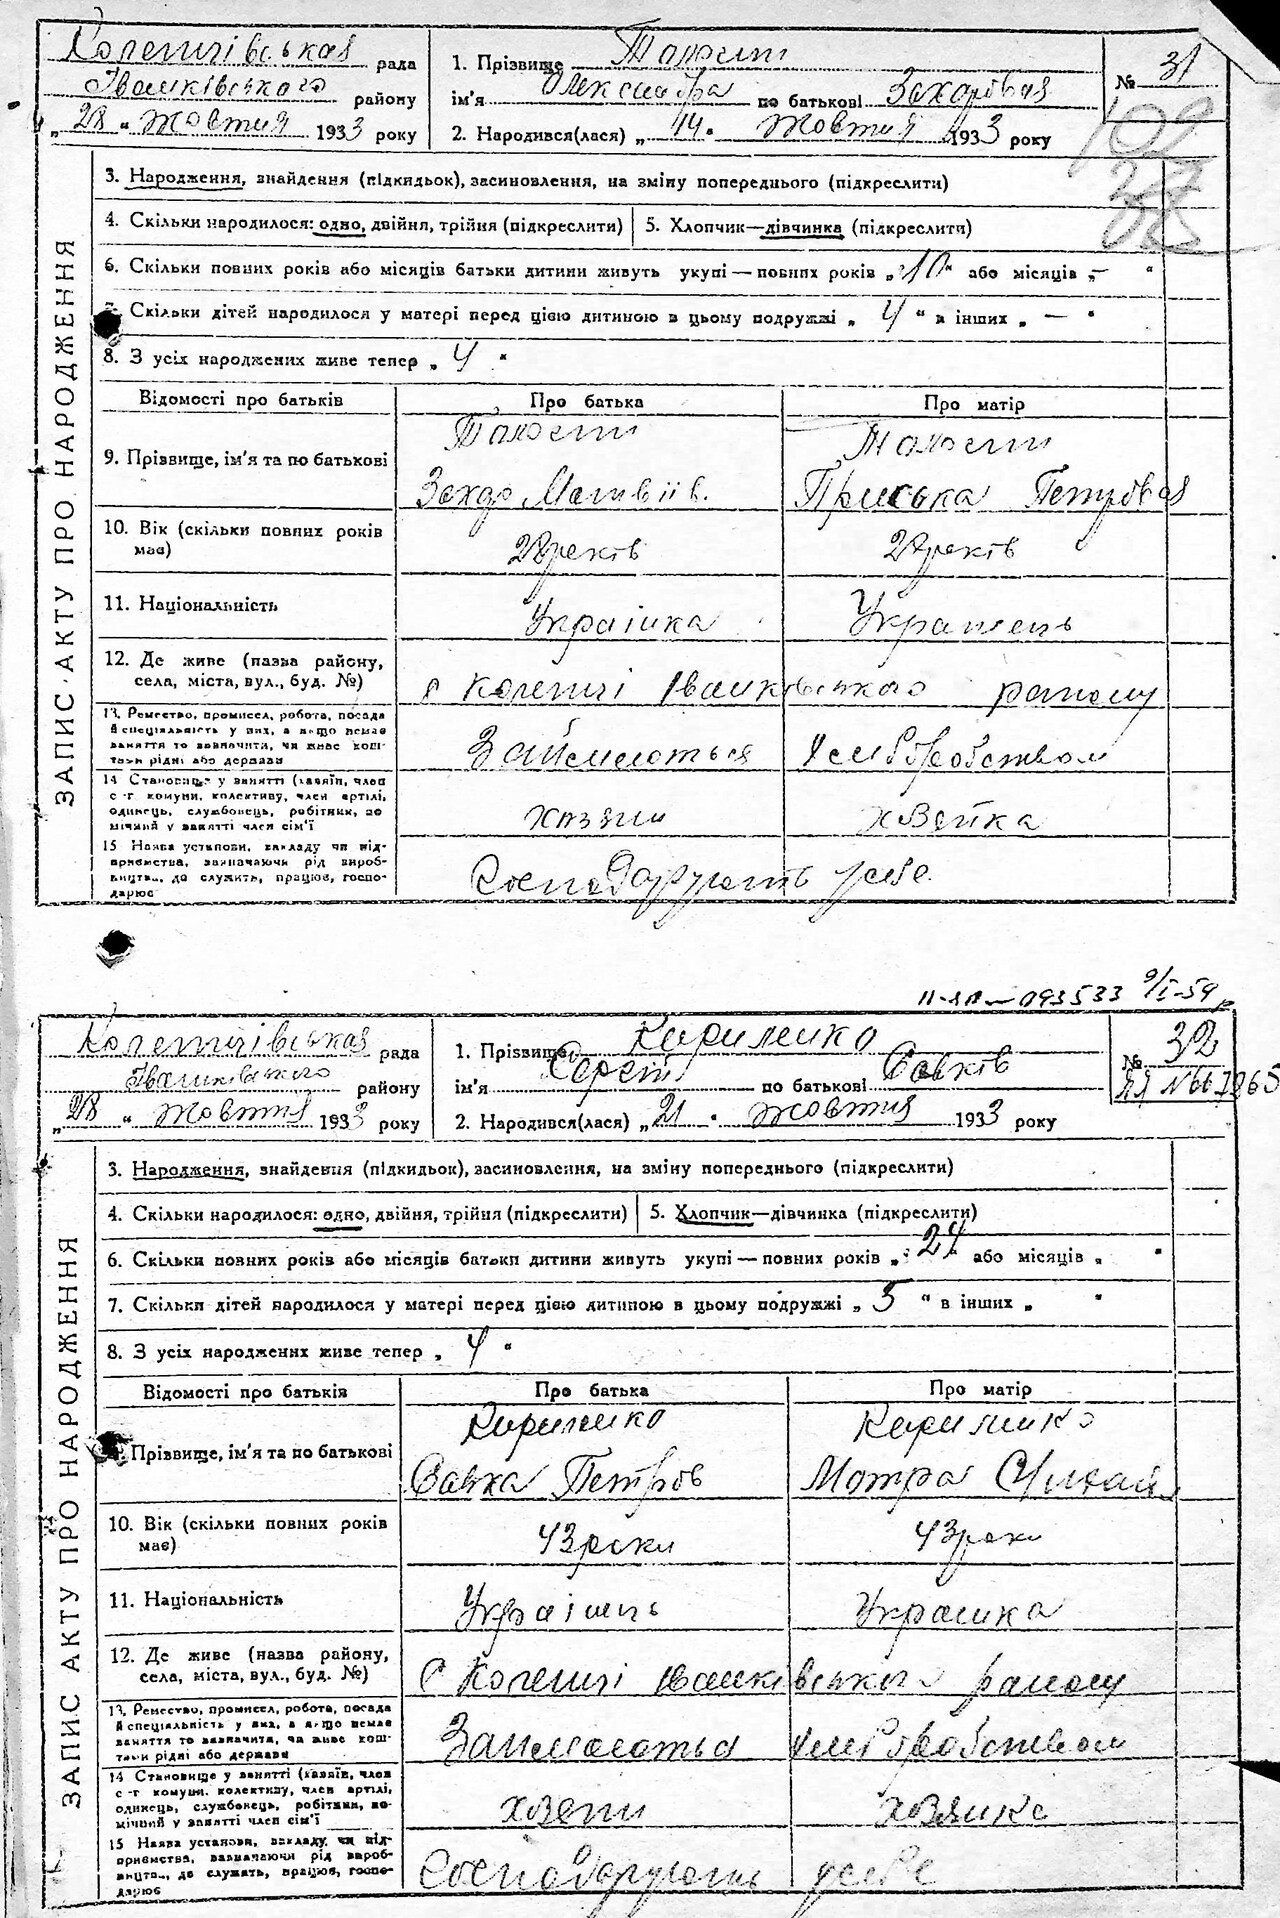 Коленчівська рада
Іванківського району
„28" Жовтня 1933 року
1. Прізвище
ім'я Олександра по батькові Захарівна
2. Народився(лася) „14" Жовтня 1933 року
№ 31
ЗАПИС АКТУ ПРО НАРОДЖЕННЯ
3. Народження, знайдення (підкидьок), засиновлення, на зміну попереднього (підкреслити)
4. Скільки народилося: одно, двійня, трійня (підкреслити) 5. Хлопчик—дівчинка (підкреслити)
6. Скільки повних років або місяців батьки дитини живуть укупі—повних років „10" або місяців „–"
7. Скільки дітей народилося у матері перед цією дитиною в цьому подружжі „4" в інших „—"
8. З усіх народжених живе тепер „4"
Відомості про батьків Про батька Про матір
9. Прізвище, ім'я та по батькові
Захар Матвіїв. Приська Петровна
10. Вік (скільки повних років має) 28 років 28 років
11. Національність Українка Українець
12. Де живе (назва району, села, міста, вул., буд. №) с Коленчі Іванківського району
13. Ремество, промисел, робота, посада й спеціяльність у них, а якщо немає заняття то зазначити, чи живе коштами рідні або держави Займаються хліборобством
14 Становище у занятті (хазяїн, член с-г комуни, колективу, член артілі, одинець, службовець, робітник, помічний у занятті член сім'ї хазяїн хозяйка
15 Назва установи, закладу чи підприємства, зазначаючи рід виробництва, де служить, працює, господарює Господарують у себе
093533 9/I-59
Коленчівська рада
Іванківського району
„28" Жовтня 1933 року
1. Прізвище Кириленко
ім'я Сергій по батькові Савків
2. Народився(лася) „21" Жовтня 1933 року
№ 32
ЗАПИС АКТУ ПРО НАРОДЖЕННЯ
3. Народження, знайдення (підкидьок), засиновлення, на зміну попереднього (підкреслити)
4. Скільки народилося: одно, двійня, трійня (підкреслити) 5. Хлопчик—дівчинка (підкреслити)
6. Скільки повних років або місяців батьки дитини живуть укупі—повних років „24" або місяців „ "
7. Скільки дітей народилося у матері перед цією дитиною в цьому подружжі „5" в інших „ "
8. З усіх народжених живе тепер „4"
Відомості про батьків Про батька Про матір
Прізвище, ім'я та по батькові Кириленко Кириленко
Савка Петров Мотра
10. Вік (скільки повних років має) 43 роки 43 роки
11. Національність Українець Українка
12. Де живе (назва району, села, міста, вул., буд. №) с Коленчі Іванківського району
13. Ремество, промисел, робота, посада й спеціяльність у них, а якщо немає заняття то зазначити, чи живе коштами рідні або держави Займаються хліборобством
14 Становище у занятті (хазяїн, член с-г комуни, колективу, член артілі, одинець, службовець, робітник, помічний у занятті член сім'ї хозяїн хозяйка
15 Назва установи, закладу чи підприємства, зазначаючи рід виробництва, де служить, працює, господарює Господарують у себе